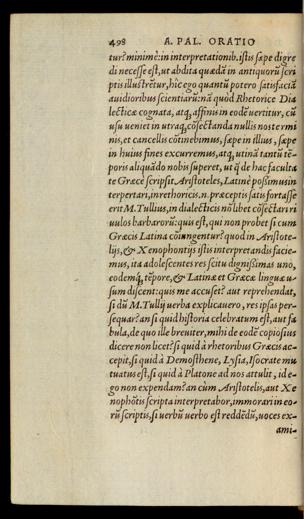 498 A. PAL. ORATIO
tur? minimè: in interpretationib. istis sæpe digre
di necesse est, ut abdita quædã in antiquorũ scri
ptis illustrẽtur, hîc ego quantũ potero satisfaciã
auidioribus scientiarũ: nã quòd Rhetorice Dia
lecticæ cognata, atq; affinis in eodẽ uertitur, cũ
usu ueniet in utraq; cõsectanda nullis nos termi
nis, et cancellis cõtinebimus, sæpe in illius, sæpe
in huius fines excurremus, atq; utinã tantũ tẽ-
poris aliquãdo nobis superet, ut q̃ de hac faculta
te Græcè scripsit Aristoteles, Latinè possimus in
terpertari, in rethoricis. n. præceptis satis fortasse
erit M. Tullius, in dialecticis nõ libet cõsectari ri
uulos barbarorũ: quis est, qui non probet si cum
Græcis Latina cõiungentur? quod in Aristote-
lijs, & Xenophontijs istis interpretandis facie-
mus, ita adolescentes res scitu dignissimas uno,
eodemq; tẽpore, & Latinæ et Græcæ linguæ u-
sum discent: quis me accuset? aut reprehendat,
si dũ M. Tullij uerba explicauero, res ipsas per-
sequar? an si quid historia celebratum est, aut fa
bula, de quo ille breuiter, mihi de eodẽ copiosius
dicere non licet? si quid à rhetoribus Græcis ac-
cepit, si quid à Demosthene, Lysia, Isocrate mu
tuatus est, si quid à Platone ad nos attulit, id e-
go non expendam? an cùm Aristotelis, aut Xe
nophõtis scripta interpretabor, immorari in eo-
rũ scriptis, si uerbũ uerbo est reddẽdũ, uoces ex-
ami-